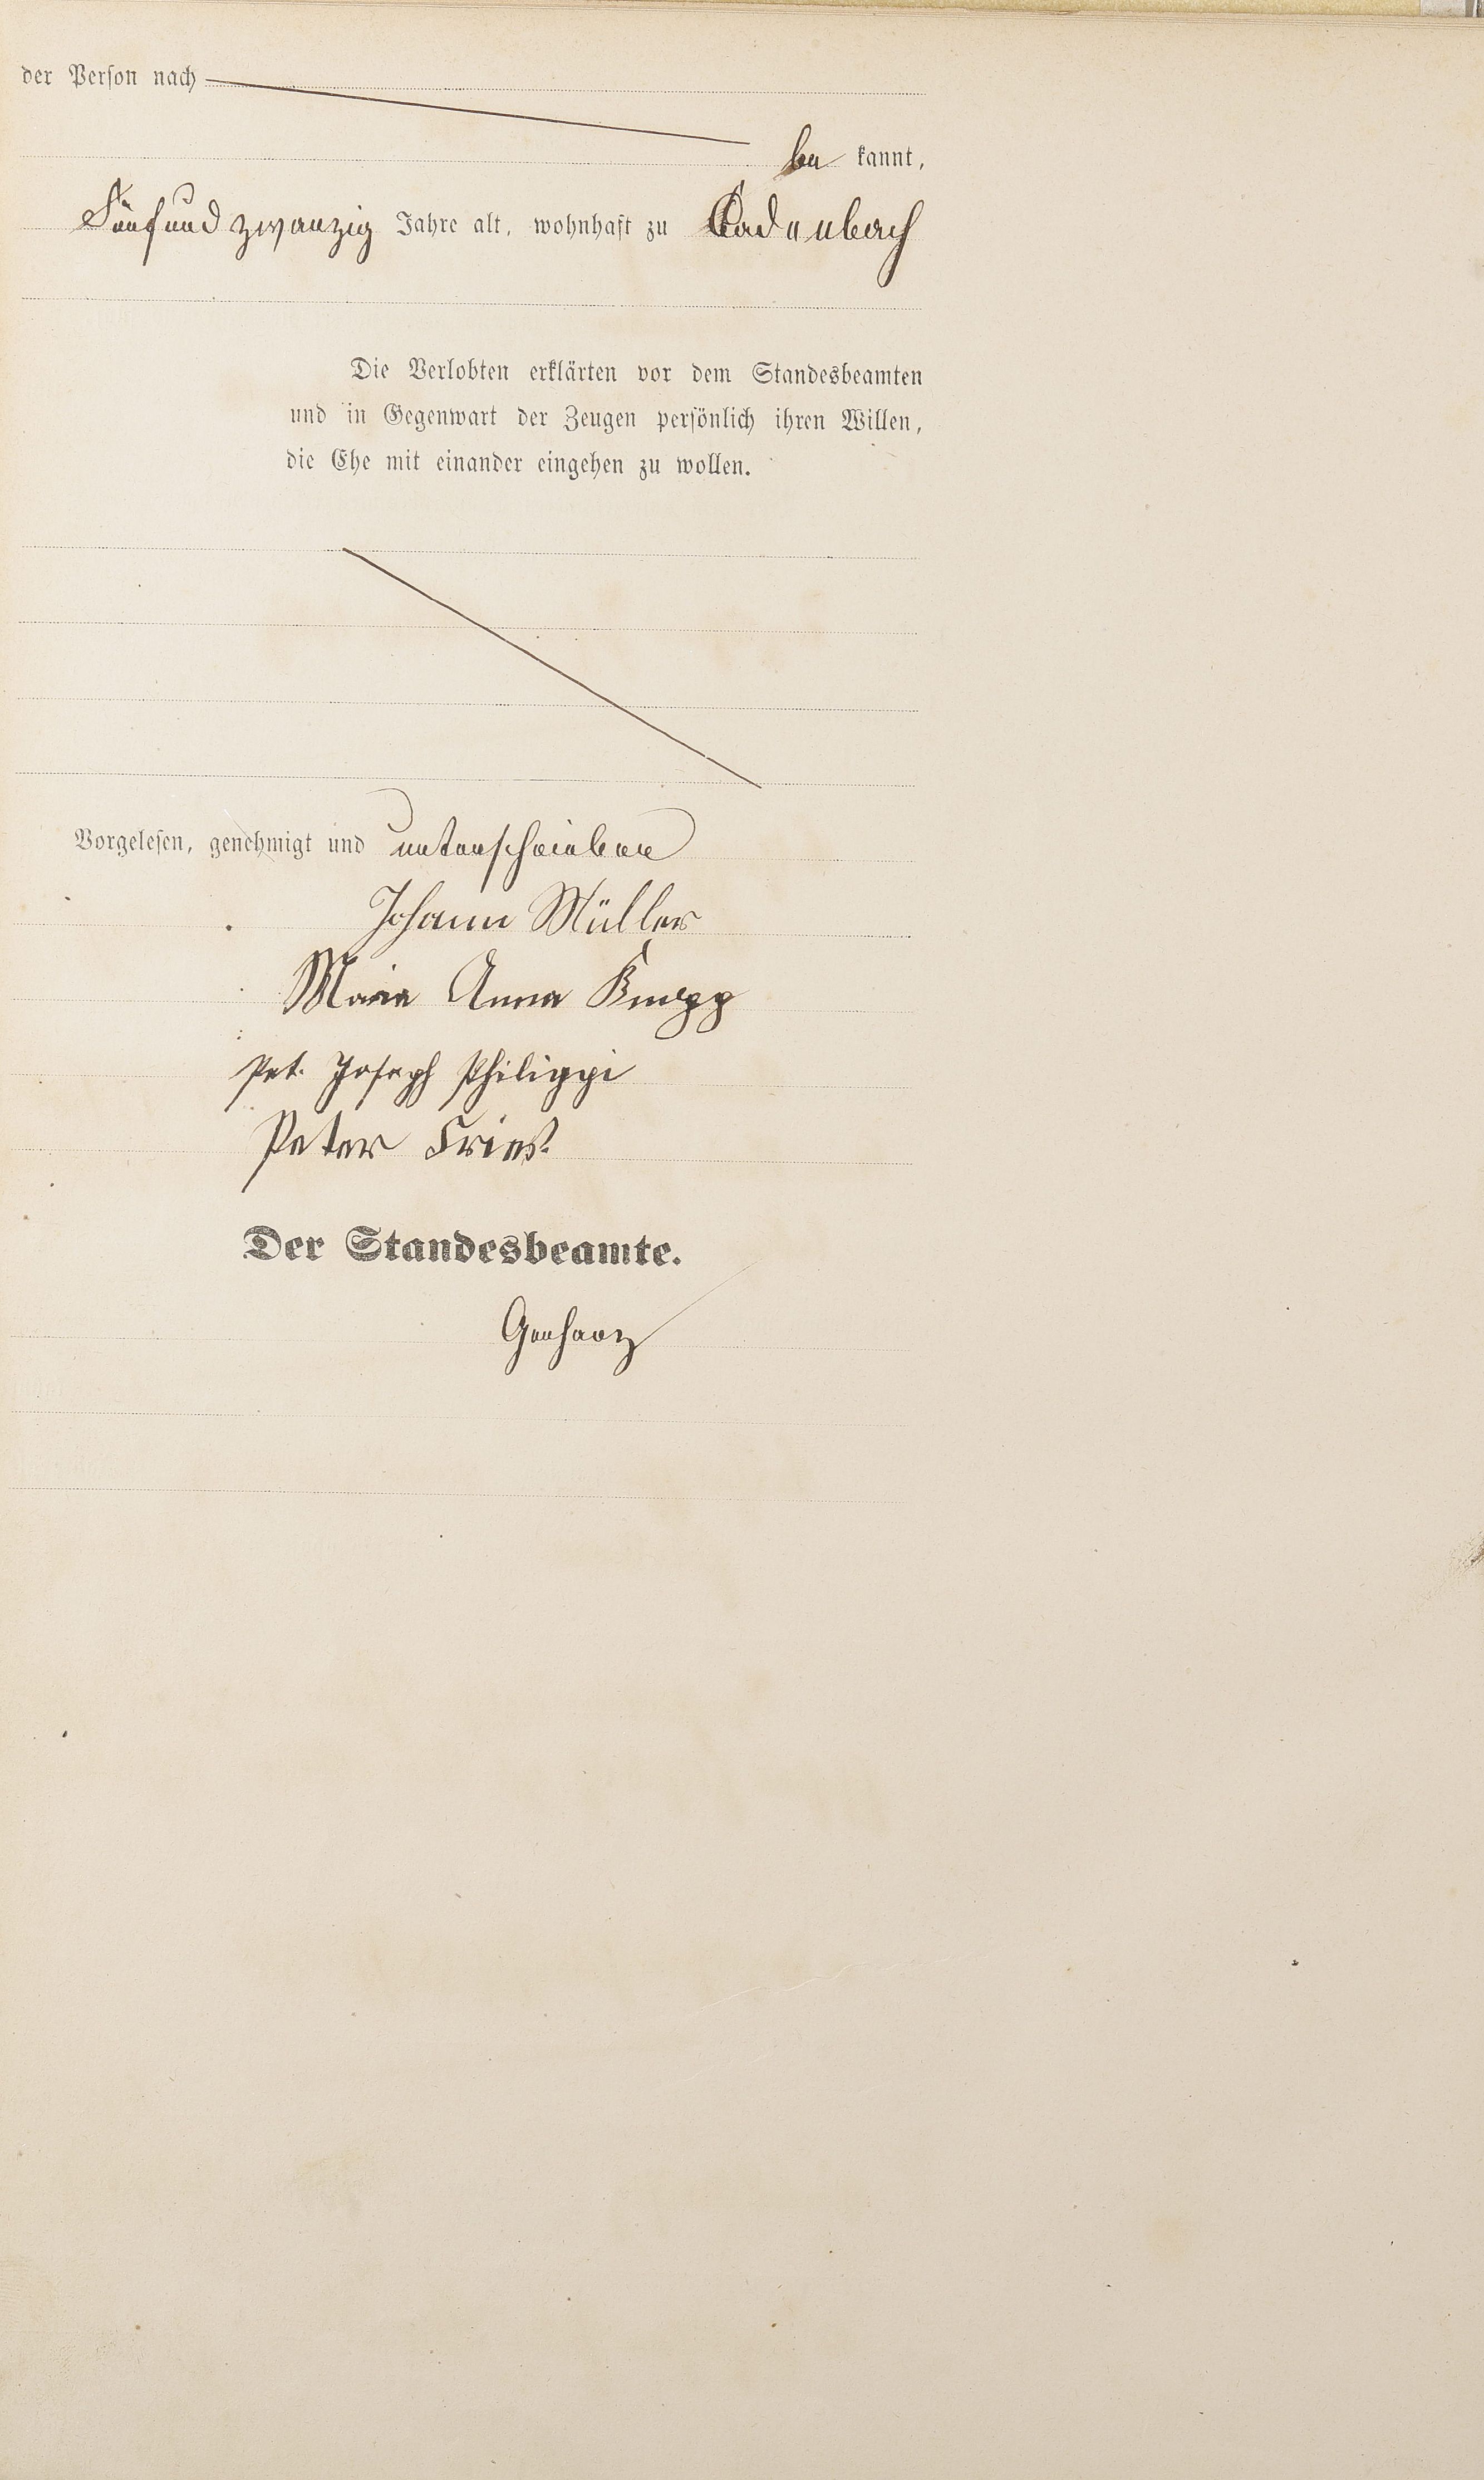 der Person nach
be kannt,
Fünf und zwanzig Jahre alt, wohnhaft zu Cadenbach
Die Verlobten erklärten vor dem Standesbeamten
und in Gegenwart der Zeugen persönlich ihren Willen,
die Ehe mit einander eingehen zu wollen.
Vorgelesen, genehmigt und unterschrieben
Johann Müller
Maria Anna Knepp
Pet. Joseph Philippi
Peter Fries.
Der Standesbeamte.
Gerharz